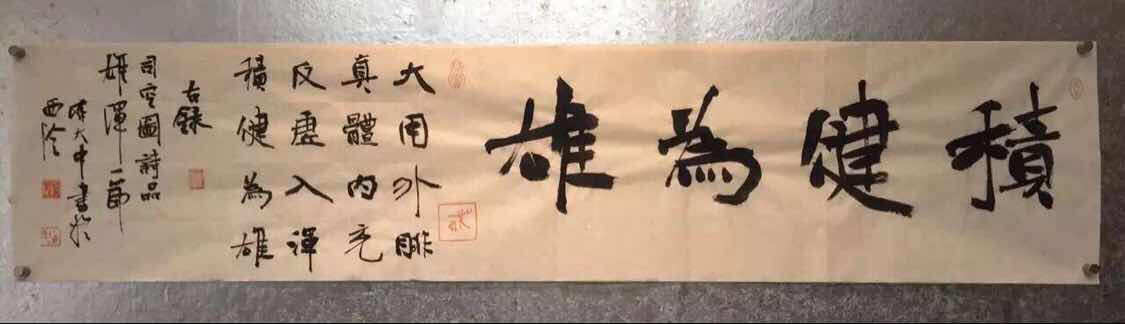 積健為雄
大用外腓
真體內充
反虛入渾
積健為雄
右録
司空圖詩品
雄渾一節
陳大中書於
西泠